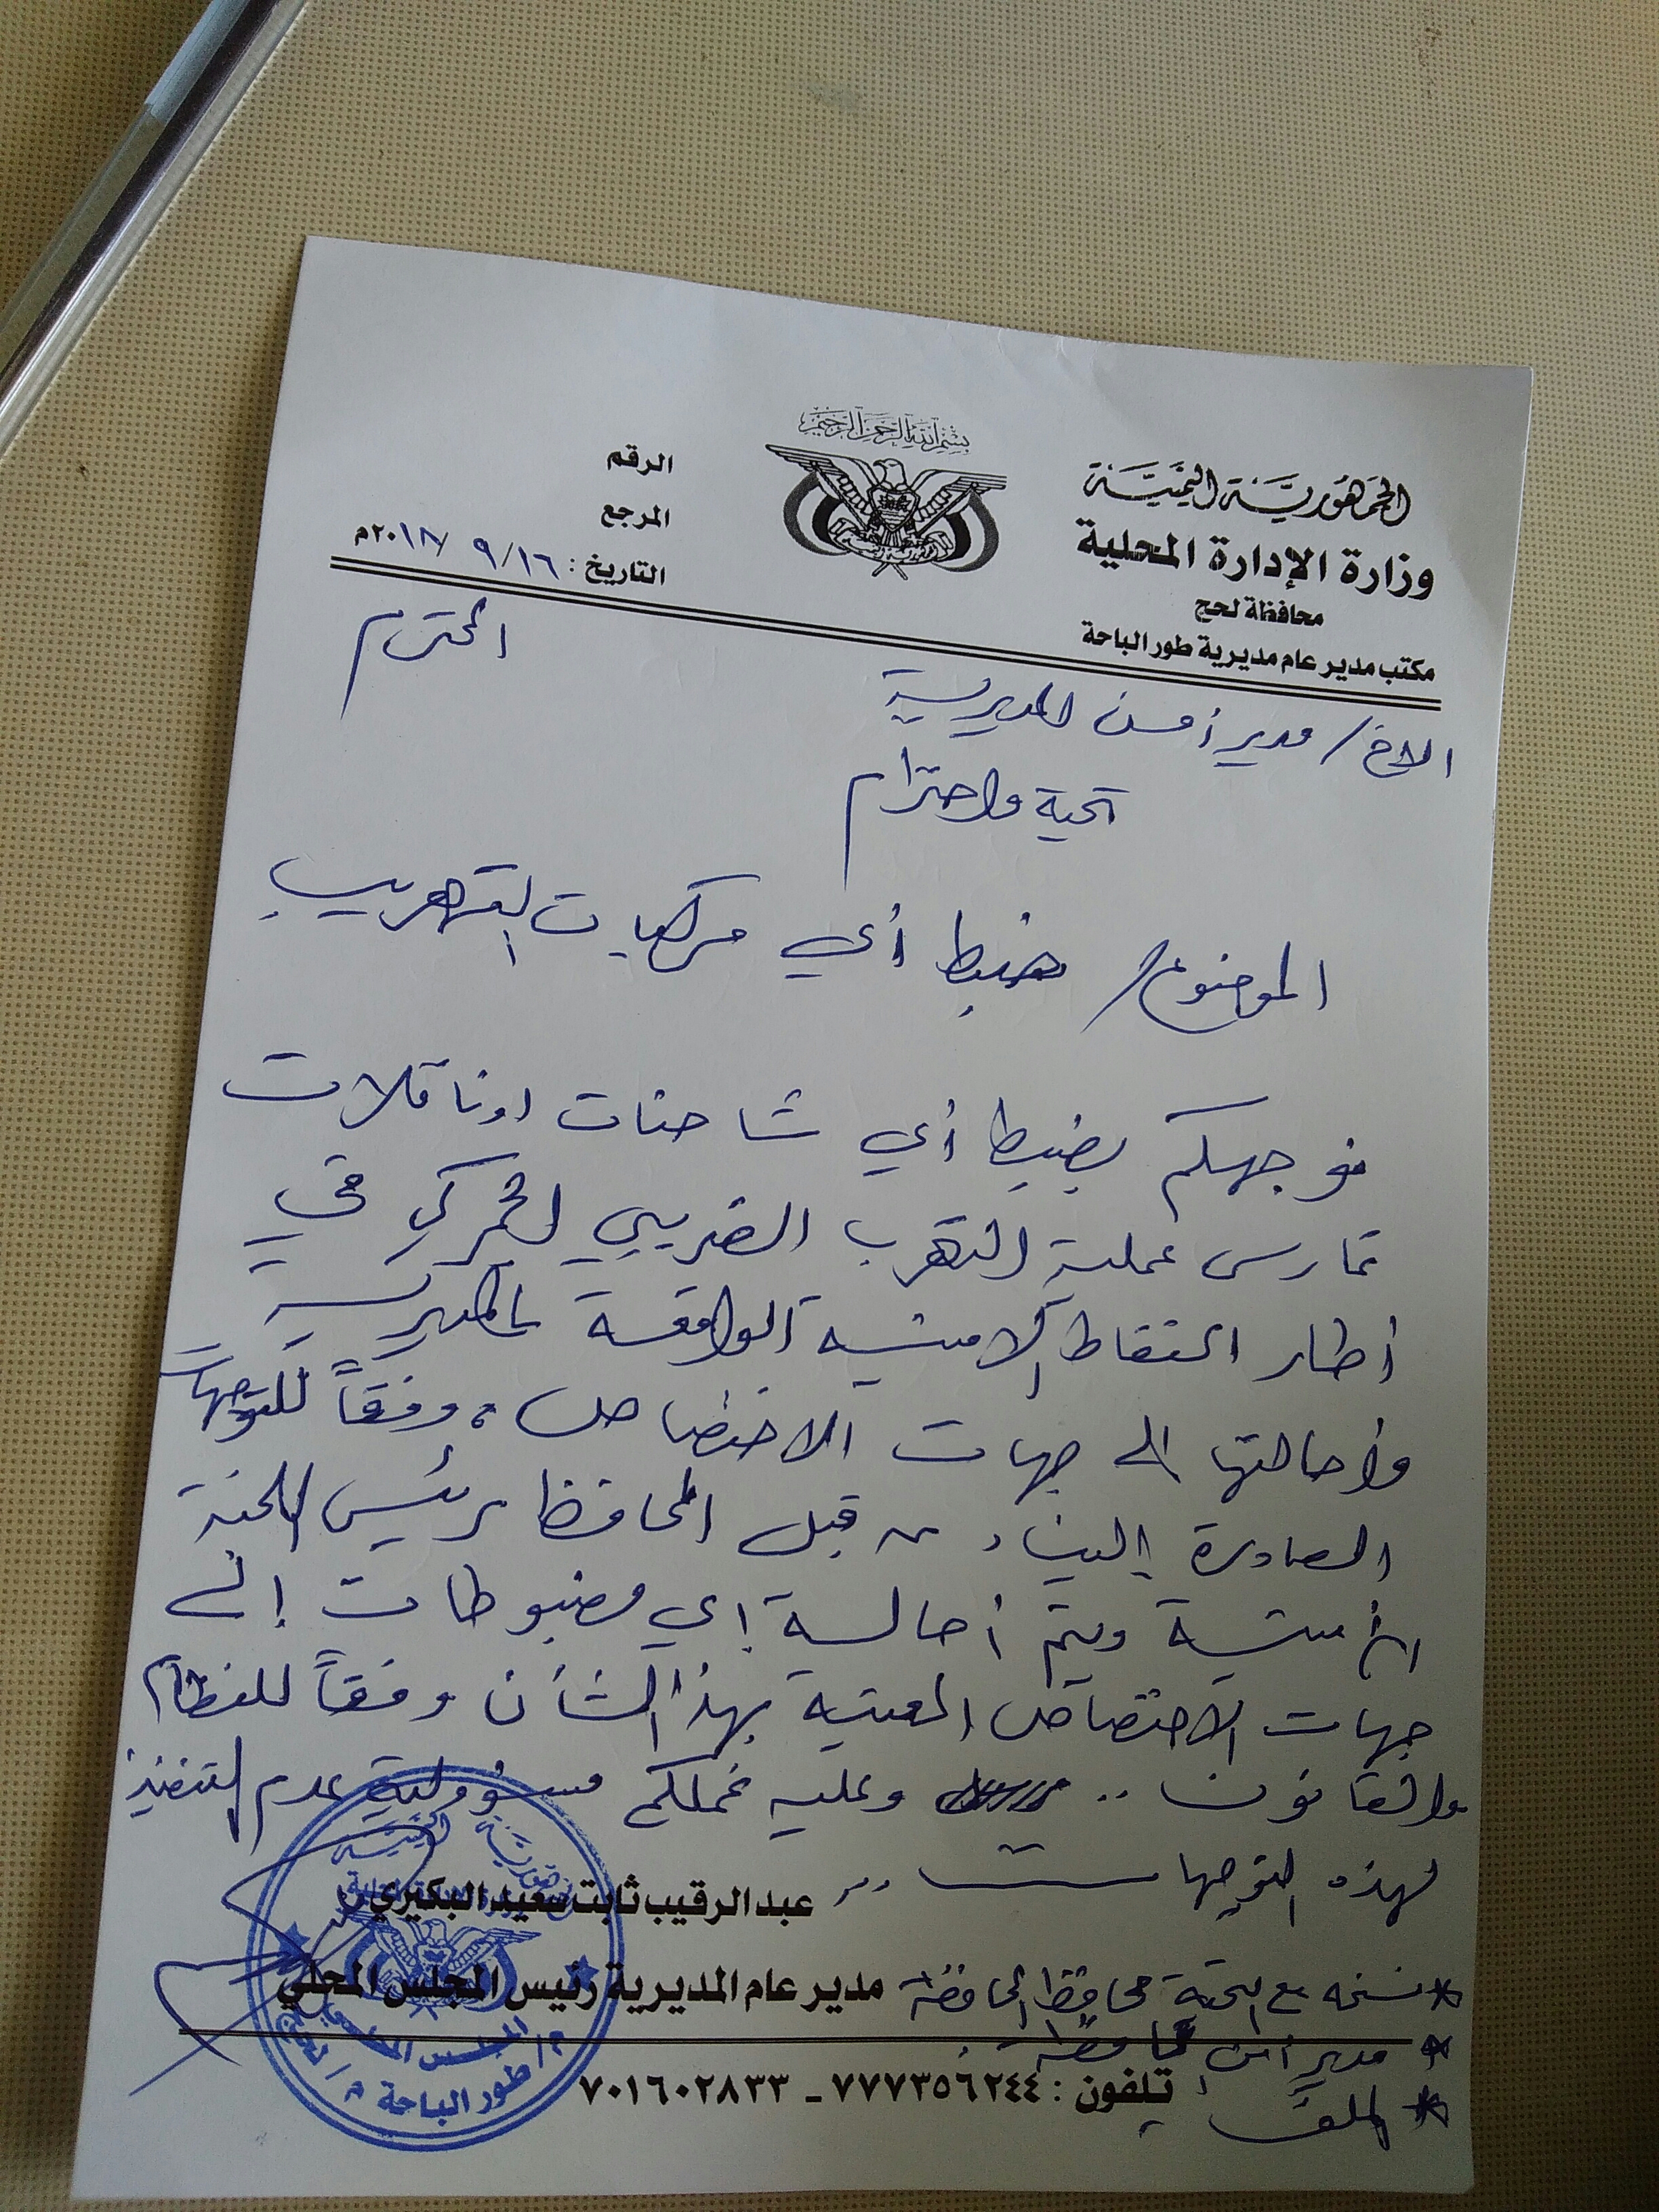 بسم الله الرحمن الرحيم
الجمهورية اليمنية
وزارة الإدارة المحلية
محافظة لحج
مكتب مدير عام مديرية طور الباحة
الرقم
المرجع
التاريخ : ١٦/ ٩ /٢٠١٨م
الاخ/ مدير أمن المديرية المحترم
تحية واحترام
الموضوع/ ضبط أي مركبات التهريب
نوجهكم بضبط أي شاحنات اوناقلات
تمارس عملية التهرب الضريبي الجمركي في
أطار النقاط الامنية الواقعة بالمديرية
وأحالتها الى جهات الاختصاص، وفقاً للتوجهات
الصادرة إلينا، من قبل المحافظ رئيس اللجنة
الأمنية ويتم أحالة إي مضبوطات إلى
جهات الاختصاص المعنية بهذا الشأن وفقاً للنظام
والقانون .. وعليه نحملكم مسؤولية عدم التنفيذ
لهذه التوجهات ..
عبدالرقيب ثابت سعيد البكيري
مدير عام المديرية رئيس المجلس المحلي
* نسخه مع التحية محافظ المحافظة
* مدير أمن المحافظة
* الملف
تلفون : ٧٧٧٣٥٦٢٤٤ ـ ٧٠١٦٠٢٨٣٣
الجمهورية اليمنية
م/ طور الباحة م/ لحج